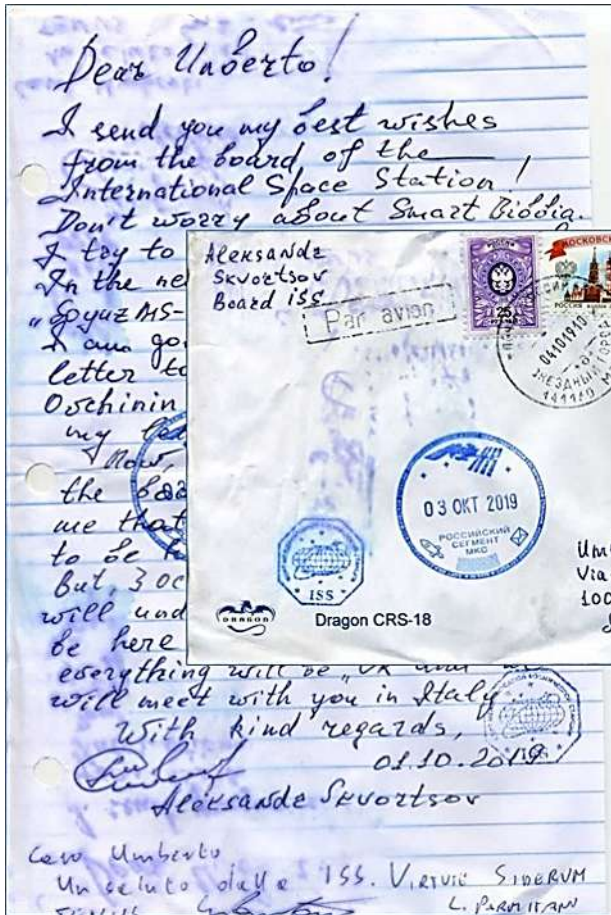 Dear Umberto!
I send you my best wishes
from the board of the
International Space Station!
Don't worry about Smart Bibbia.
I try to
In the ne
"Soyuz MS-
I am go
letter to
Ovchinin
my
Now,
the ba
me that
to be
But, 3 oc
will und
be here
everything will be "OK" and we
will meet with you in Italy
With kind regards,
01.10.2019
Aleksandr Skvortsov
Caro Umberto
Un saluto dalla ISS. VIRTUTE SIDERUM
L. PARMITANO
Aleksandr
Skvortsov
Board ISS
Par avion
РОССИЯ
25
МОСКОВСК
РОССИЯ
04101910
ЗВЕЗДНЫЙ ГОРО
141140
03 ОКТ 2019
РОССИЙСКИЙ
СЕГМЕНТ
МКС
ISS
DRAGON
Dragon CRS-18
Um
Via
100